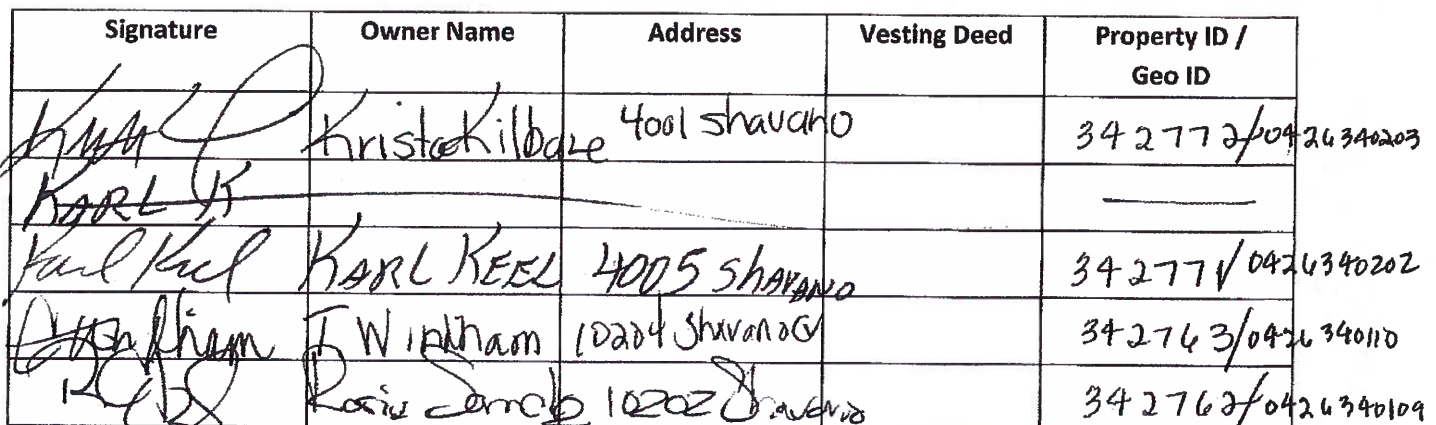 Signature Owner Name Address Vesting Deed Property ID / Geo ID
Krista Kilbane 4001 Shavano 342772/0426340203
KARL K
Karl Keel KARL KEEL 4005 Shavano 342771/0426340202
T Windham 10204 Shavano 342763/0426340110
10202 Shavano 342762/0426340109